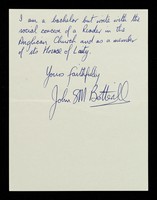 I am a bachelor but work with the
social concern of a Reader in the
Anglican Church and as a member
of its House of Laity.
Yours faithfully
John SM